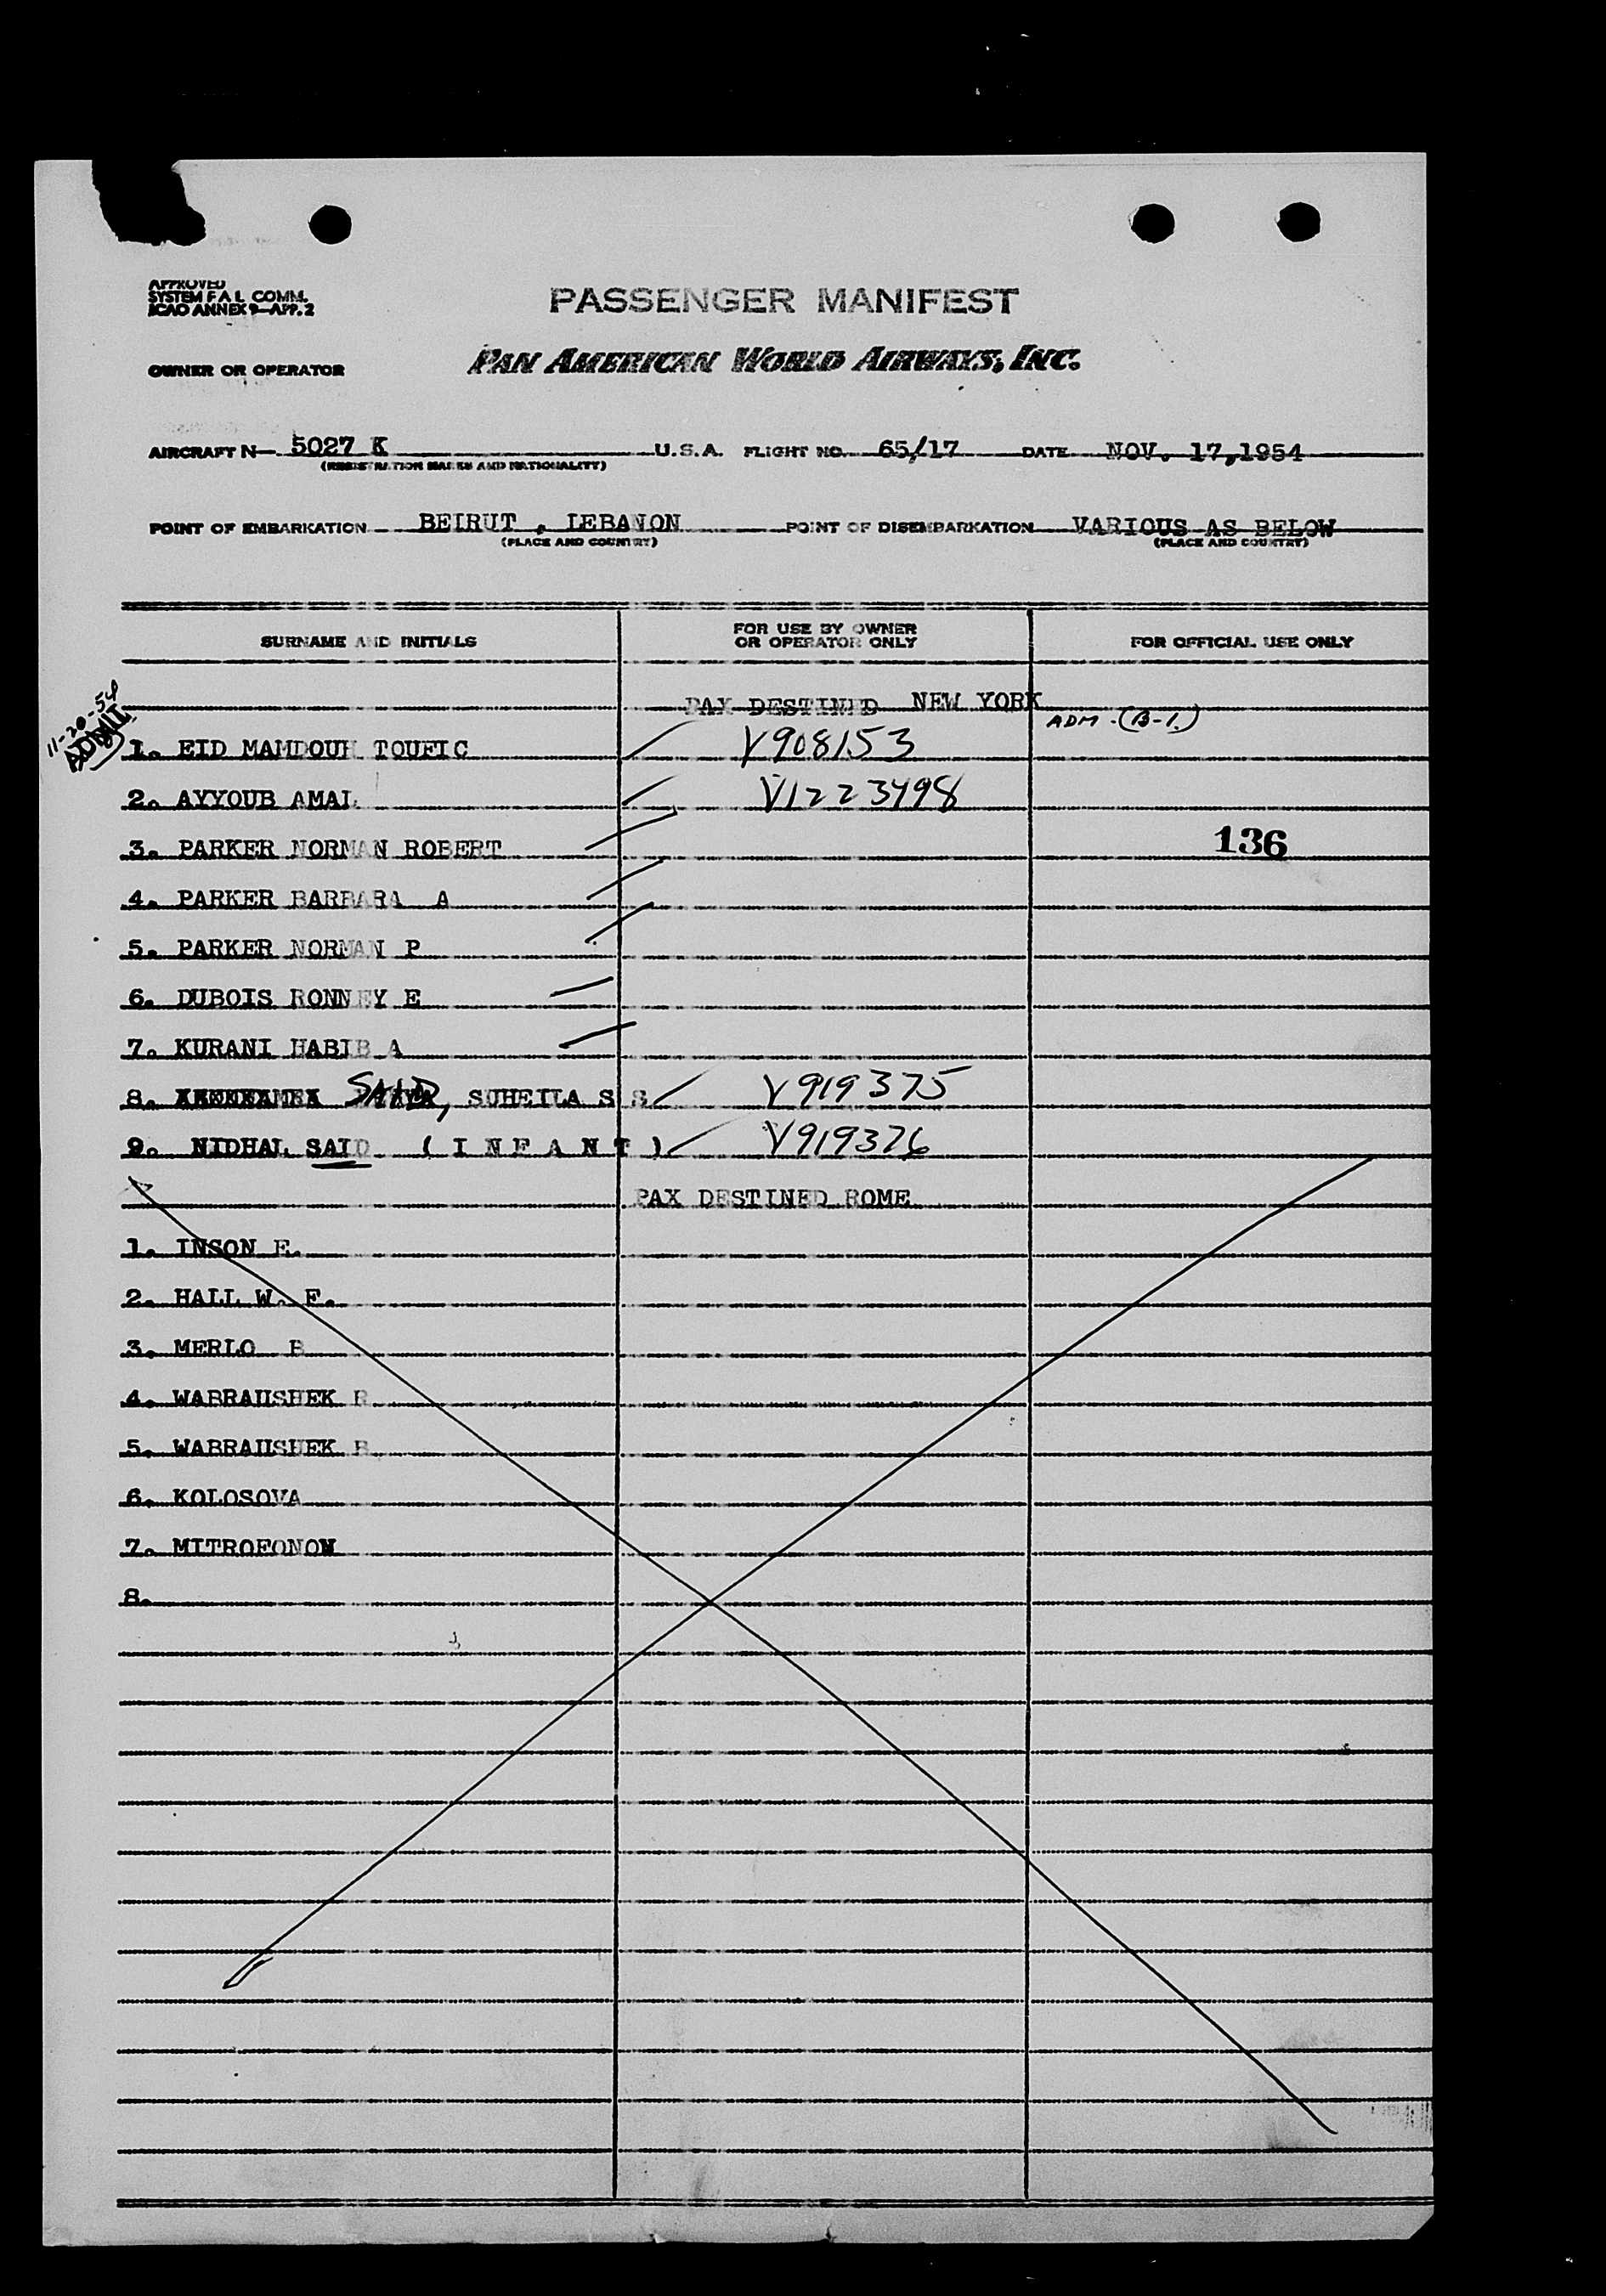 APPROVED
SYSTEM F A L COMM.
ICAO ANNEX 9—APP. 2
PASSENGER MANIFEST
OWNER OR OPERATOR PAN AMERICAN WORLD AIRWAYS, INC.
AIRCRAFT N— 5027 K U.S.A. FLIGHT NO. 65/17 DATE NOV. 17,1954
(REGISTRATION MARKS AND NATIONALITY)
POINT OF EMBARKATION BEIRUT , LEBANON POINT OF DISEMBARKATION VARIOUS AS BELOW
(PLACE AND COUNTRY) (PLACE AND COUNTRY)
SURNAME AND INITIALS FOR USE BY OWNER OR OPERATOR ONLY FOR OFFICIAL USE ONLY
PAX DESTINED NEW YORK
11-20-54
ADMIT
ADM - (B-1.)
1. EID MAMDOUH TOUFIC V908153
2. AYYOUB AMAL V1223498
3. PARKER NORMAN ROBERT 136
4. PARKER BARBARA A
5. PARKER NORMAN P
6. DUBOIS RONNEY E
7. KURANI HABIB A
8. SAID, SUHEILA S S V919375
9. NIDHAL SAID ( I N F A N T ) V919376
PAX DESTINED ROME
1. INSON E.
2. HALL W. F.
3. MERLO B
4. WABRAUSHEK R
5. WABRAUSHEK B
6. KOLOSOVA
7. MITROFONON
8.